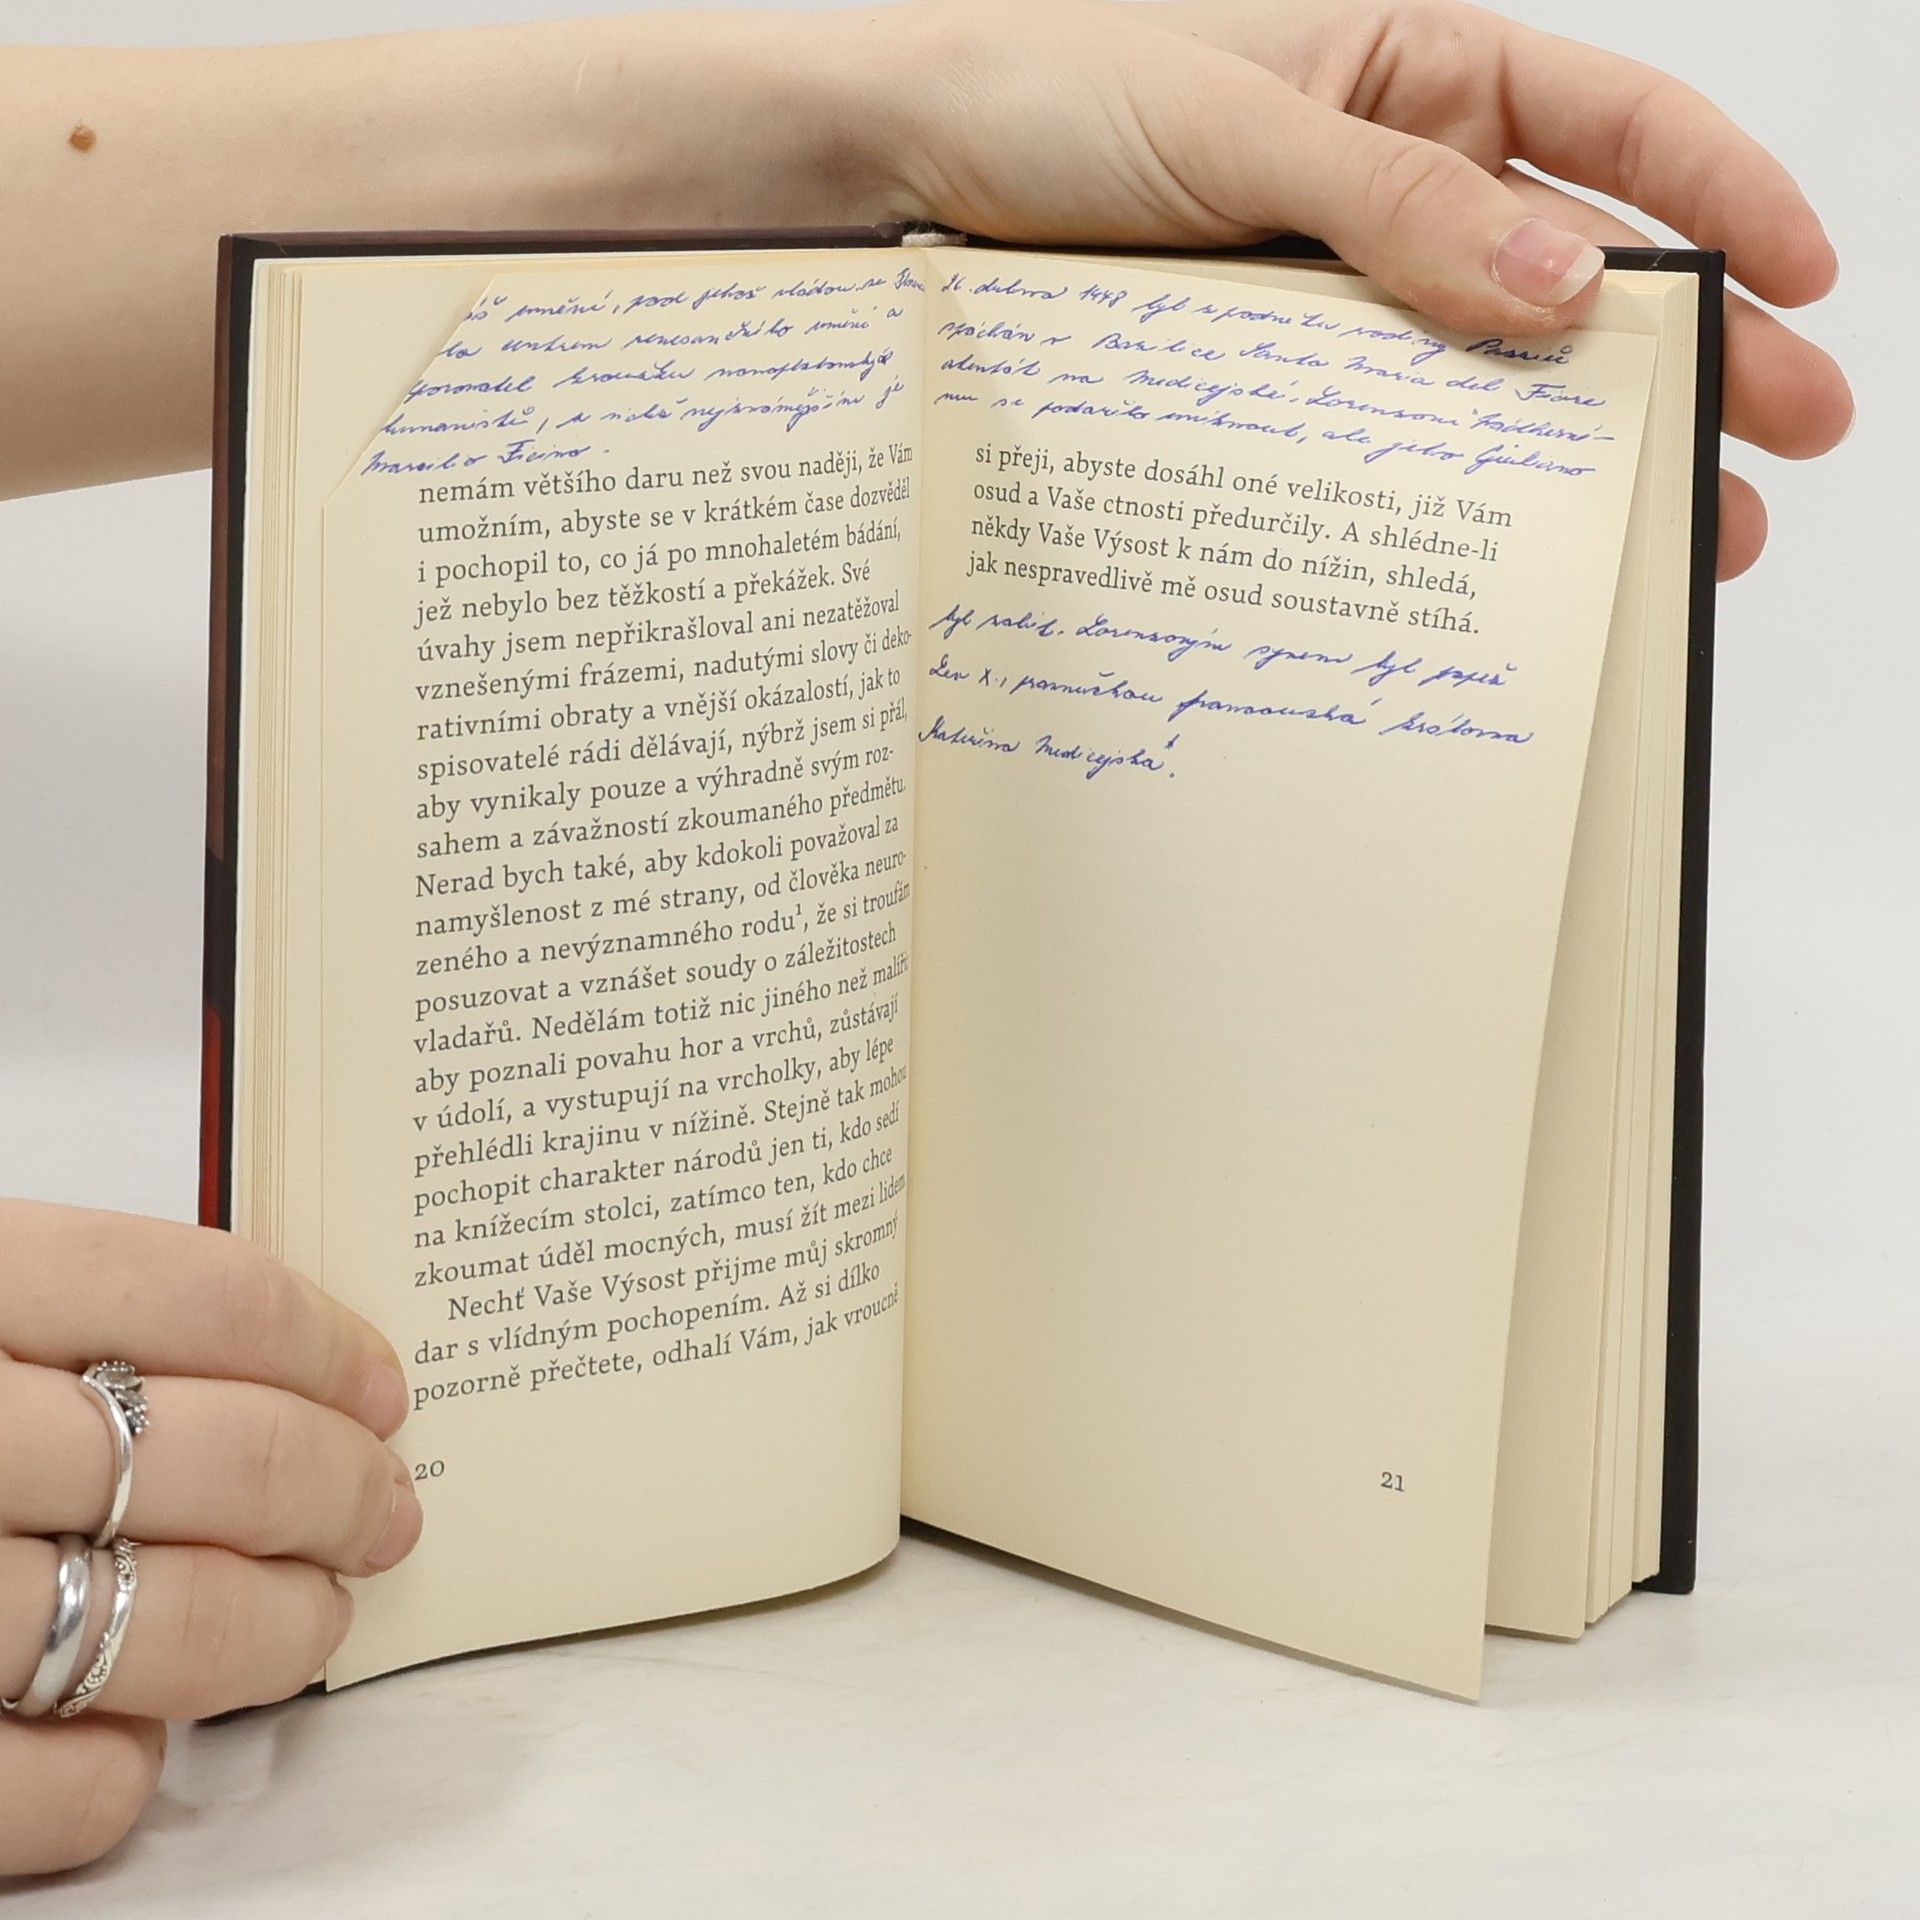 umění, pod jehož vládou se
centrem renesančního umění a
humanistů, z nichž nejznámějším je
Marsilio Ficino.
nemám většího daru než svou naději, že Vám
umožním, abyste se v krátkém čase dozvěděl
i pochopil to, co já po mnohaletém bádání,
jež nebylo bez těžkostí a překážek. Své
úvahy jsem nepřikrašloval ani nezatěžoval
vznešenými frázemi, nadutými slovy či deko-
rativními obraty a vnější okázalostí, jak to
spisovatelé rádi dělávají, nýbrž jsem si přál,
aby vynikaly pouze a výhradně svým roz-
sahem a závažností zkoumaného předmětu.
Nerad bych také, aby kdokoli považoval za
namyšlenost z mé strany, od člověka neuro-
zeného a nevýznamného rodu¹, že si troufám
posuzovat a vznášet soudy o záležitostech
vladařů. Nedělám totiž nic jiného než malíři:
aby poznali povahu hor a vrchů, zůstávají
v údolí, a vystupují na vrcholky, aby lépe
přehlédli krajinu v nížině. Stejně tak mohou
pochopit charakter národů jen ti, kdo sedí
na knížecím stolci, zatímco ten, kdo chce
zkoumat úděl mocných, musí žít mezi lidem.
Nechť Vaše Výsost přijme můj skromný
dar s vlídným pochopením. Až si dílko
pozorně přečtete, odhalí Vám, jak vroucně
20
26. dubna 1448 byl z podnětu rodiny Pazziů
spáchán v Bazilice Santa Maria del Fiore
atentát na Medicejské. Lorenzovi Nádherné-
mu se podařilo uniknout, ale jeho Giuliano
si přeji, abyste dosáhl oné velikosti, již Vám
osud a Vaše ctnosti předurčily. A shlédne-li
někdy Vaše Výsost k nám do nížin, shledá,
jak nespravedlivě mě osud soustavně stíhá.
byl zabit. Lorenzovým synem byl papež
Lev X., pravnučkou francouzská královna
Kateřina Medicejská.
21